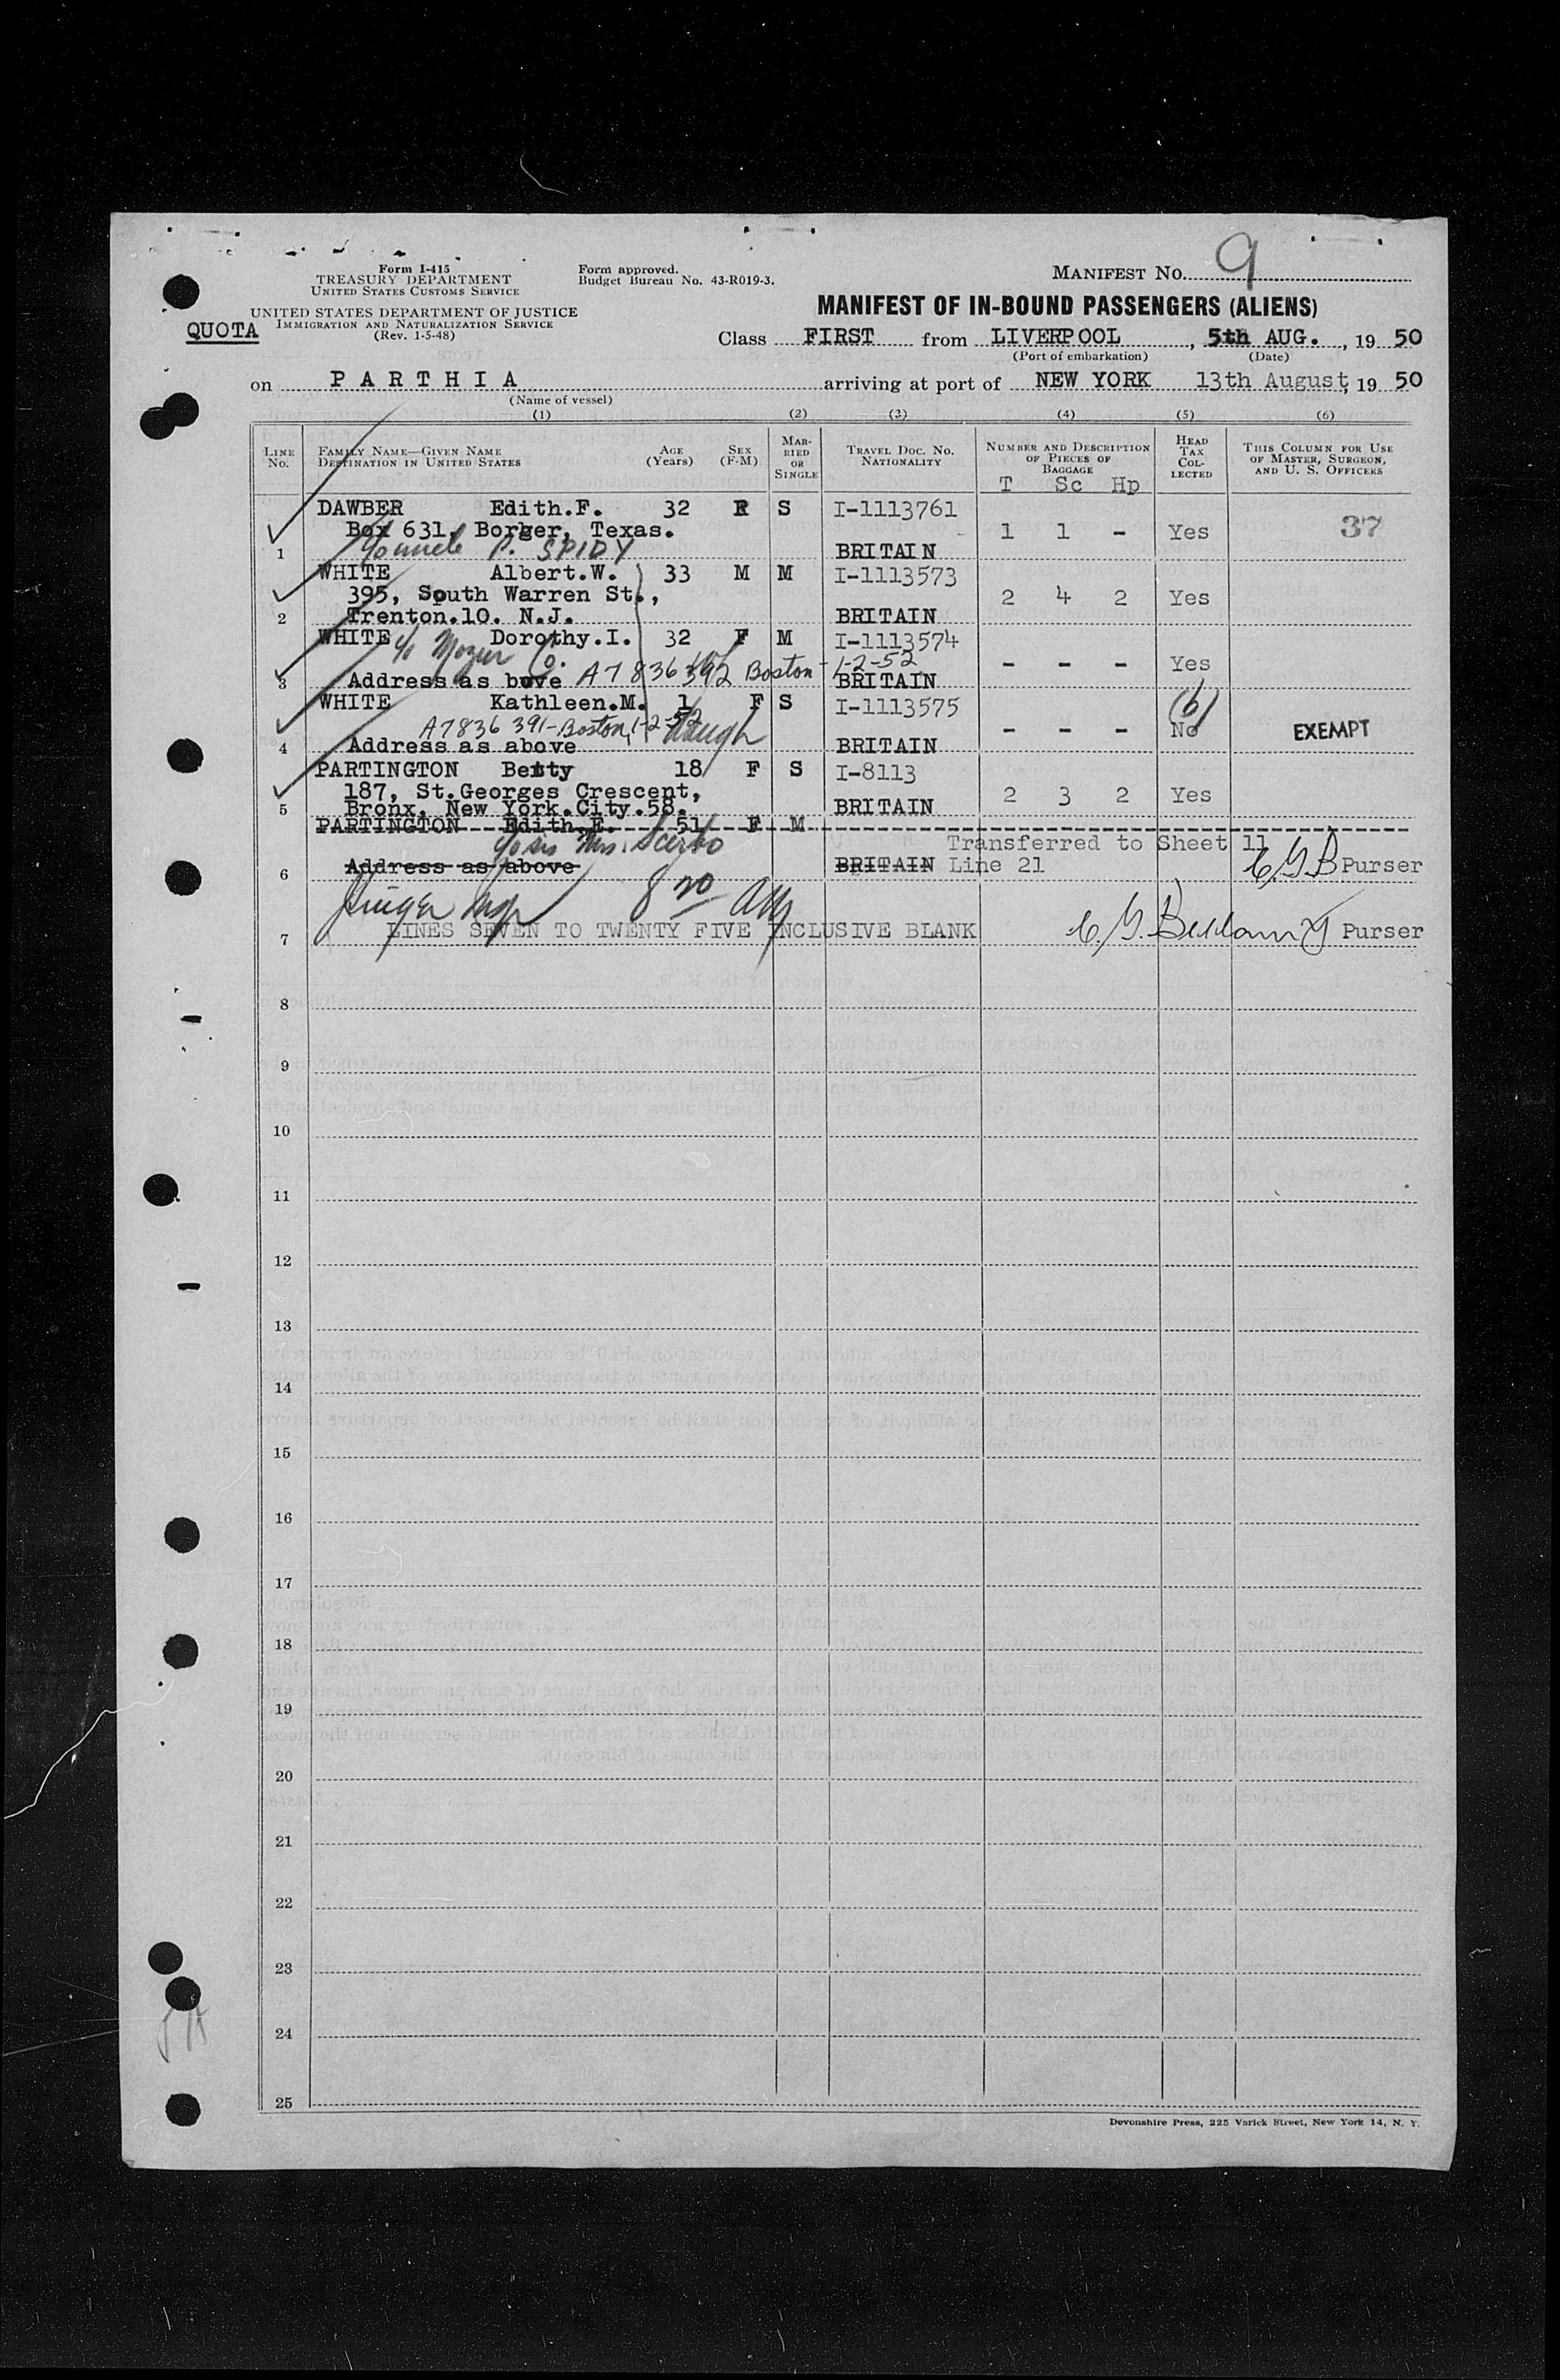 Form I-415
TREASURY DEPARTMENT
UNITED STATES CUSTOMS SERVICE
UNITED STATES DEPARTMENT OF JUSTICE
IMMIGRATION AND NATURALIZATION SERVICE
(Rev. 1-5-48)
QUOTA
Form approved.
Budget Bureau No. 43-R019-3.
MANIFEST No. 9
MANIFEST OF IN-BOUND PASSENGERS (ALIENS)
Class FIRST from LIVERPOOL, 5th AUG., 19 50
(Port of embarkation) (Date)
on PARTHIA arriving at port of NEW YORK 13th August, 19 50
(Name of vessel)
(1) (2) (3) (4) (5) (6)
LINE No. FAMILY NAME—GIVEN NAME DESTINATION IN UNITED STATES AGE (Years) SEX (F-M) MARRIED OR SINGLE TRAVEL DOC. NO. NATIONALITY NUMBER AND DESCRIPTION OF PIECES OF BAGGAGE HEAD TAX COLLECTED THIS COLUMN FOR USE OF MASTER, SURGEON, AND U. S. OFFICERS
T Sc Hp
DAWBER Edith.F. 32 F S I-1113761
Box 631, Borger, Texas. 1 1 - Yes 37
1 c/o uncle P. SPIDY BRITAIN
WHITE Albert.W. 33 M M I-1113573
395, South Warren St., 2 4 2 Yes
2 Trenton.10. N.J. BRITAIN
WHITE Dorothy.I. 32 F M I-1113574
c/o Mozur Co. - - - Yes
3 Address as bove A7 836 392 Boston - 1-2-52 BRITAIN
WHITE Kathleen.M. 1 F S I-1113575 (b)
A7836 391-Boston, 1-2-52 - - - No EXEMPT
4 Address as above BRITAIN
PARTINGTON Betty 18 F S I-8113
187, St.Georges Crescent, 2 3 2 Yes
5 Bronx, New York.City.58. BRITAIN
PARTINGTON Edith.E. 51 F M
c/o sis Mrs. Scerbo Transferred to Sheet 11
6 Address as above BRITAIN Line 21 C.G.B. Purser
8 20
7 LINES SEVEN TO TWENTY FIVE INCLUSIVE BLANK C. G. Bellamy Purser
8
9
10
11
12
13
14
15
16
17
18
19
20
21
22
23
24
25
Devonshire Press, 225 Varick Street, New York 14, N. Y.